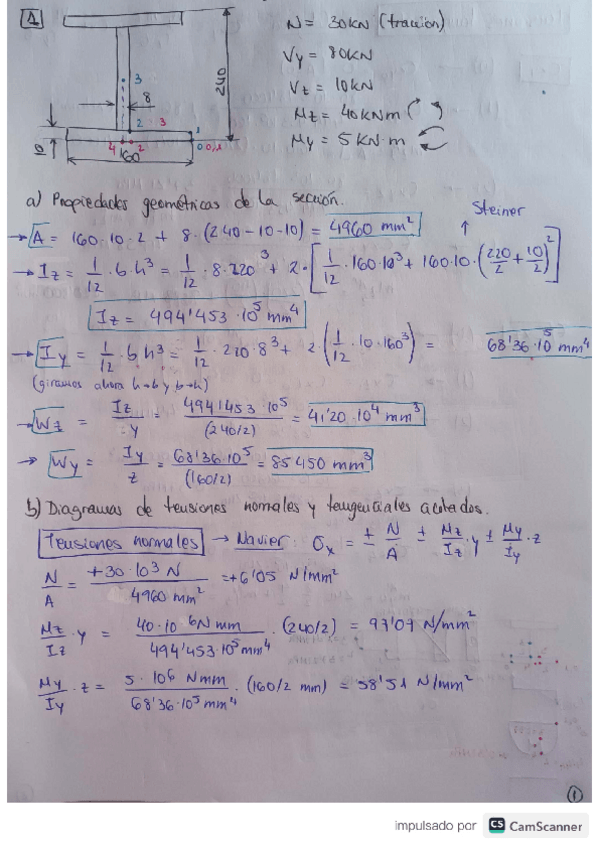 1
N = 30KN (tracción)
Vy = 80KN
Vz = 10KN
Mz = 40KNm
My = 5 KN·m
240
3
8
2 3
1
4 2 0 0,1
10
160
a) Propiedades geométricas de la sección.
Steiner
→ A = 160·10·2 + 8·(240-10-10) = 4960 mm²
→ Iz = 1/12 · b·h³ = 1/12 · 8·220³ + 2·[1/12 ·160·10³ + 160·10·(220/2 + 10/2)²]
Iz = 494'453·10⁵ mm⁴
→ Iy = 1/12 · b h³ = 1/12 · 220·8³ + 2·(1/12 · 10·160³) = 68'36·10⁵ mm⁴
(giramos ahora h→b y b→h)
→ Wz = Iz/y = 494'453·10⁵/(240/2) = 41'20·10⁴ mm³
→ Wy = Iy/z = 68'36·10⁵/(160/2) = 85450 mm³
b) Diagramas de tensiones normales y tengenciales acotados.
Tensiones normales → Navier: σx = ± N/A ± Mz/Iz · y ± My/Iy · z
N/A = +30·10³ N/4960 mm² = +6'05 N/mm²
Mz/Iz · y = 40·10⁶ N mm/494'453·10⁵ mm⁴ · (240/2) = 97'07 N/mm²
My/Iy · z = 5·10⁶ Nmm/68'36·10⁵ mm⁴ · (160/2 mm) = 58'51 N/mm²
1
impulsado por CS CamScanner